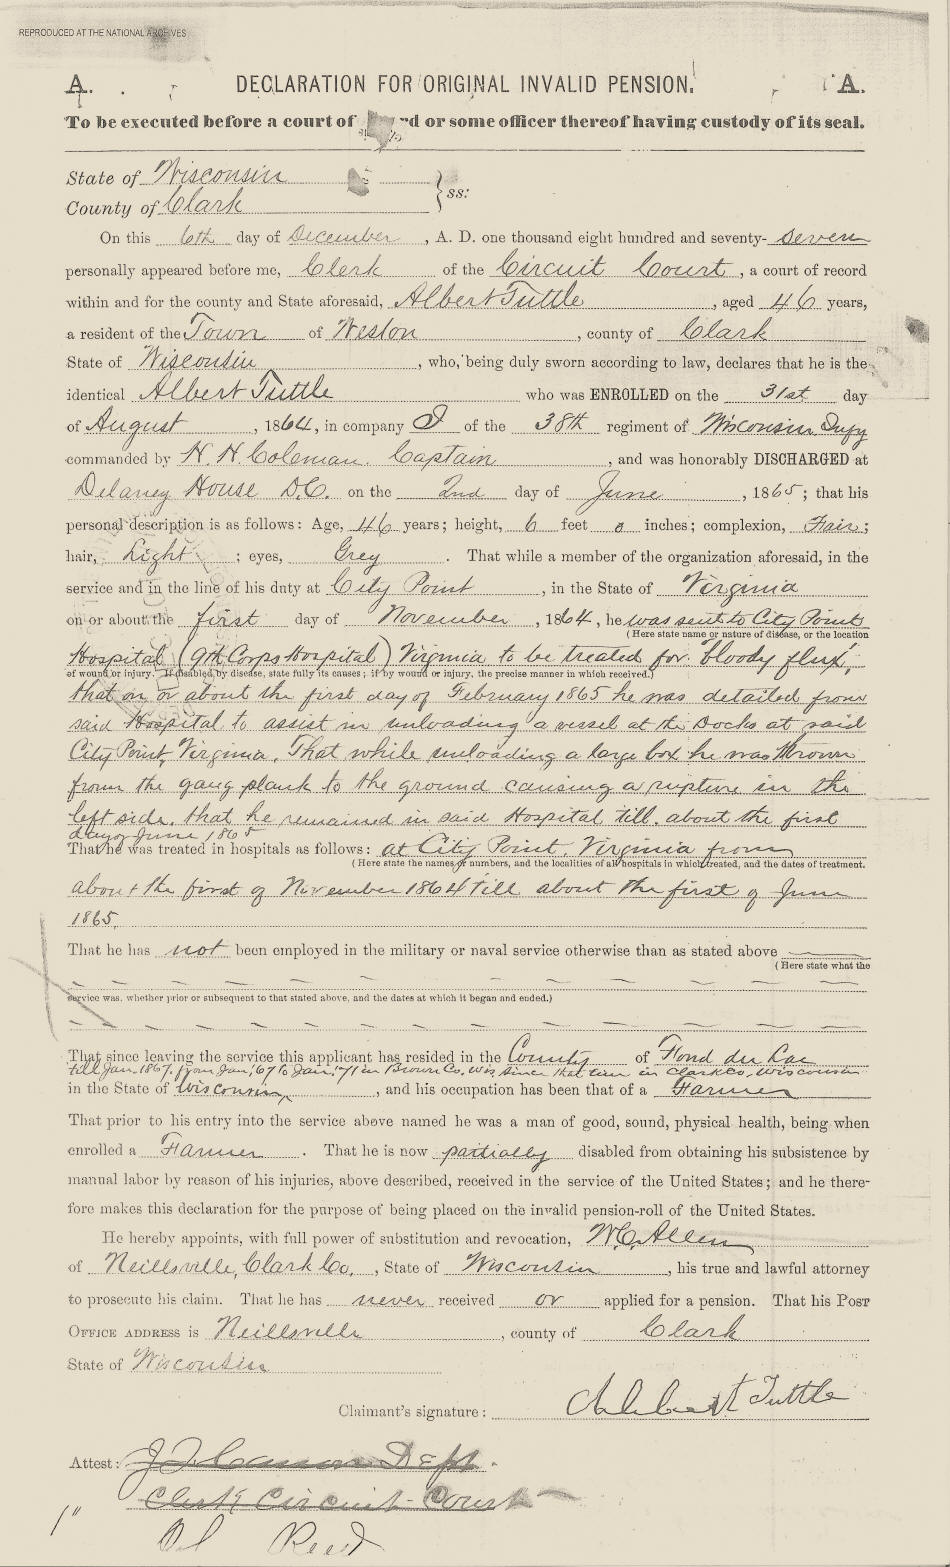 REPRODUCED AT THE NATIONAL ARCHIVES
A. DECLARATION FOR ORIGINAL INVALID PENSION. A.
To be executed before a court of rd or some officer thereof having custody of its seal.
State of Wisconsin
County of Clark } ss:
On this 6th day of December, A. D. one thousand eight hundred and seventy-seven
personally appeared before me, Clerk of the Circuit Court, a court of record
within and for the county and State aforesaid, Albert Tuttle, aged 46 years,
a resident of the Town of Weston, county of Clark
State of Wisconsin, who, being duly sworn according to law, declares that he is the
identical Albert Tuttle who was ENROLLED on the 31st day
of August, 1864, in company I of the 38th regiment of Wisconsin Infy
commanded by H. H. Coleman. Captain, and was honorably DISCHARGED at
Delaney House D.C. on the 2nd day of June, 1865; that his
personal description is as follows: Age, 46 years; height, 6 feet 0 inches; complexion, Fair;
hair, Light; eyes, Grey. That while a member of the organization aforesaid, in the
service and in the line of his duty at City Point, in the State of Virginia
on or about the first day of November, 1864, he was sent to City Point
(Here state name or nature of disease, or the location
Hospital (9th Corps Hospital) Virginia to be treated for bloody flux,
of wound or injury. If disabled by disease, state fully its causes; if by wound or injury, the precise manner in which received.)
that on or about the first day of February 1865 he was detailed from
said Hospital to assist in unloading a vessel at the Docks at said
City Point, Virginia. That while unloading a large box he was thrown
from the gang plank to the ground causing a rupture in the
left side. that he remained in said Hospital till about the first
day of June 1865
That he was treated in hospitals as follows: at City Point, Virginia from
(Here state the names or numbers, and the localities of all hospitals in which treated, and the dates of treatment.
about the first of November 1864 till about the first of June
1865.
That he has not been employed in the military or naval service otherwise than as stated above
(Here state what the
service was, whether prior or subsequent to that stated above, and the dates at which it began and ended.)
That since leaving the service this applicant has resided in the County of Fond du Lac
till Jan. 1867. from Jan, '67 to Jan, '71 in Brown Co, Wis, since that time in Clark Co, Wisconsin
in the State of Wisconsin, and his occupation has been that of a Farmer
That prior to his entry into the service above named he was a man of good, sound, physical health, being when
enrolled a Farmer. That he is now partially disabled from obtaining his subsistence by
manual labor by reason of his injuries, above described, received in the service of the United States; and he there-
fore makes this declaration for the purpose of being placed on the invalid pension-roll of the United States.
He hereby appoints, with full power of substitution and revocation, W.C. Allen
of Neillsville, Clark Co., State of Wisconsin, his true and lawful attorney
to prosecute his claim. That he has never received or applied for a pension. That his Post
Office address is Neillsville, county of Clark
State of Wisconsin
Claimant's signature: Albert Tuttle
Attest: Dept.
Clerk Circuit Court
Reed